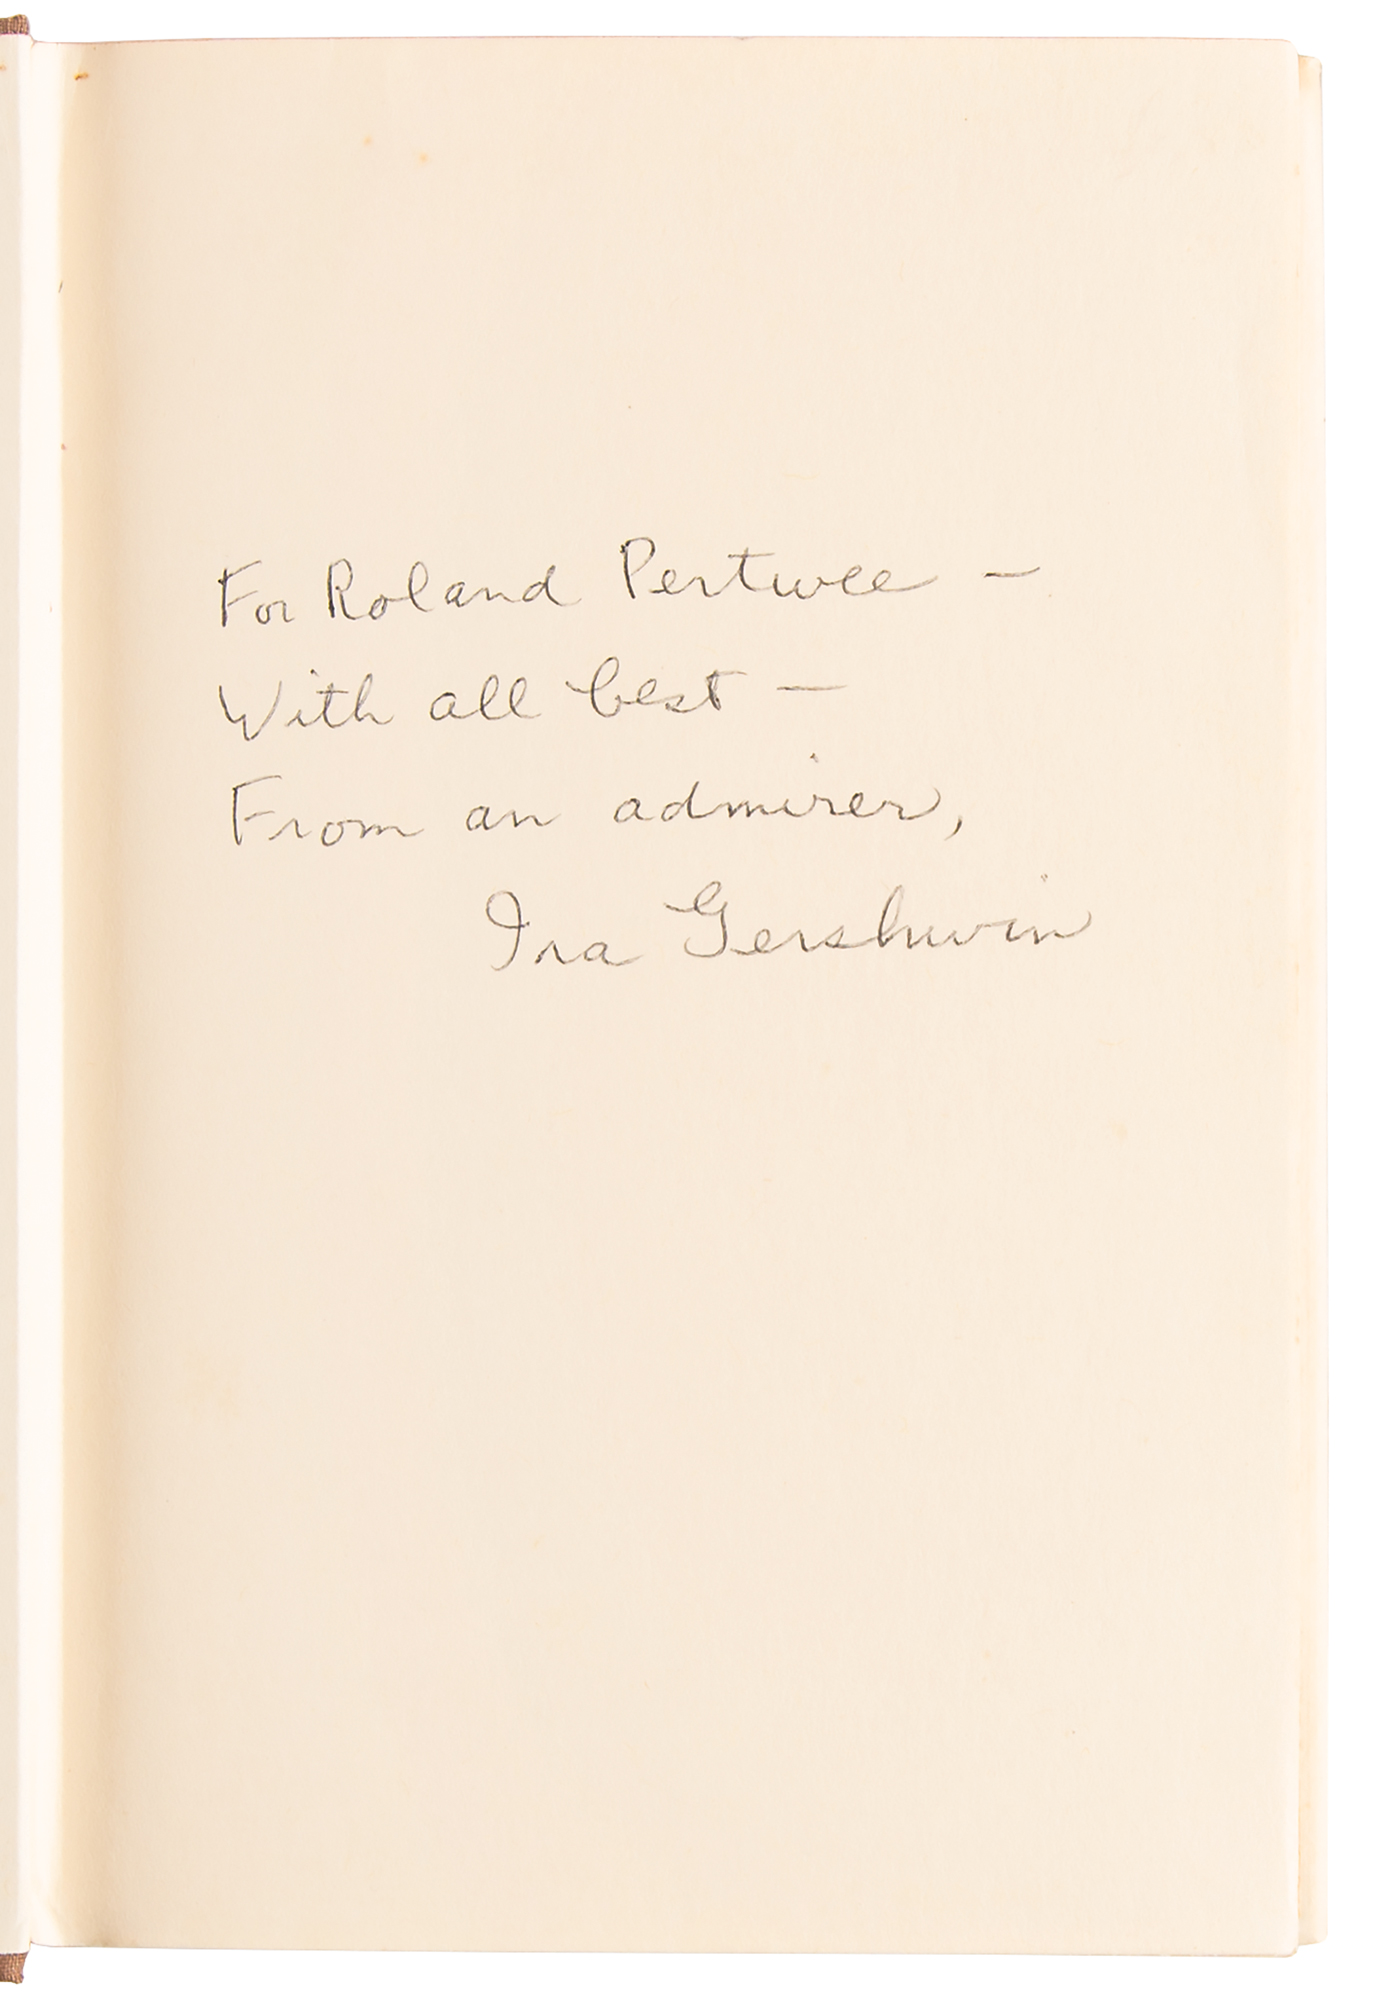 For Roland Pertwee —
With all best —
From an admirer,
Ira Gershwin